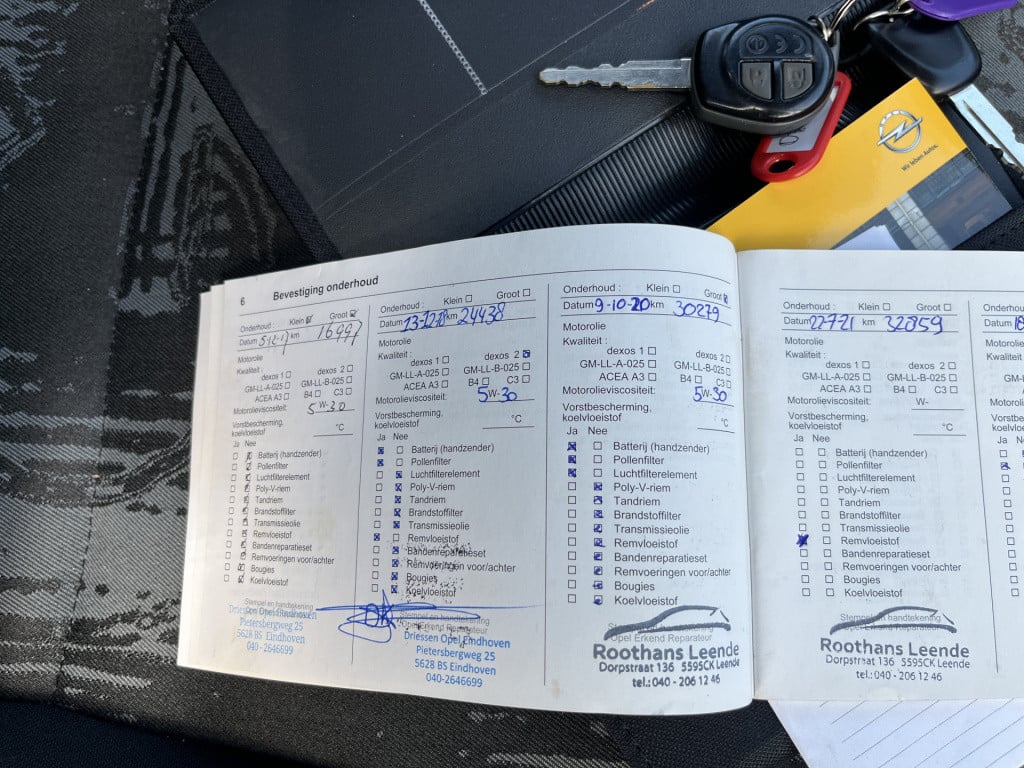 Wir leben Autos.
6 Bevestiging onderhoud
Onderhoud : Klein Groot
Datum 5-12-17 km 16997
Motorolie
Kwaliteit :
dexos 1 dexos 2
GM-LL-A-025 GM-LL-B-025
ACEA A3 B4 C3
Motorolieviscositeit: 5 W-30
Vorstbescherming,
koelvloeistof °C
Ja Nee
Batterij (handzender)
Pollenfilter
Luchtfilterelement
Poly-V-riem
Tandriem
Brandstoffilter
Transmissieolie
Remvloeistof
Bandenreparatieset
Remvoeringen voor/achter
Bougies
Koelvloeistof
Stempel en handtekening
Driessen Opel Eindhoven
Pietersbergweg 25
5628 BS Eindhoven
040-2646699
Onderhoud : Klein Groot
Datum 13-12-18 km 24438
Motorolie
Kwaliteit :
dexos 1 dexos 2
GM-LL-A-025 GM-LL-B-025
ACEA A3 B4 C3
Motorolieviscositeit: 5W-30
Vorstbescherming,
koelvloeistof °C
Ja Nee
Batterij (handzender)
Pollenfilter
Luchtfilterelement
Poly-V-riem
Tandriem
Brandstoffilter
Transmissieolie
Remvloeistof
Bandenreparatieset
Remvoeringen voor/achter
Bougies
Koelvloeistof
Stempel en handtekening
Opel Erkend Reparateur
Driessen Opel Eindhoven
Pietersbergweg 25
5628 BS Eindhoven
040-2646699
Onderhoud : Klein Groot
Datum 9-10-20 km 30279
Motorolie
Kwaliteit :
dexos 1 dexos 2
GM-LL-A-025 GM-LL-B-025
ACEA A3 B4 C3
Motorolieviscositeit: 5W-30
Vorstbescherming,
koelvloeistof °C
Ja Nee
Batterij (handzender)
Pollenfilter
Luchtfilterelement
Poly-V-riem
Tandriem
Brandstoffilter
Transmissieolie
Remvloeistof
Bandenreparatieset
Remvoeringen voor/achter
Bougies
Koelvloeistof
Stempel en handtekening
Opel Erkend Reparateur
Roothans Leende
Dorpstraat 136 5595CK Leende
tel.: 040 - 206 12 46
Onderhoud : Klein Groot
Datum 22-7-21 km 32859
Motorolie
Kwaliteit :
dexos 1 dexos 2
GM-LL-A-025 GM-LL-B-025
ACEA A3 B4 C3
Motorolieviscositeit: W-
Vorstbescherming,
koelvloeistof °C
Ja Nee
Batterij (handzender)
Pollenfilter
Luchtfilterelement
Poly-V-riem
Tandriem
Brandstoffilter
Transmissieolie
Remvloeistof
Bandenreparatieset
Remvoeringen voor/achter
Bougies
Koelvloeistof
Stempel en handtekening
Opel Erkend Reparateur
Roothans Leende
Dorpstraat 136 5595CK Leende
tel.: 040 - 206 12 46
Datum
Motorolie
Kwaliteit
Ja